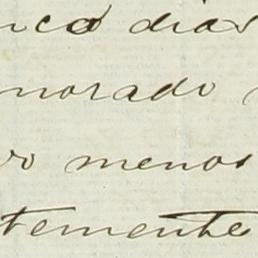 nco dias
norado
vo menos
temente